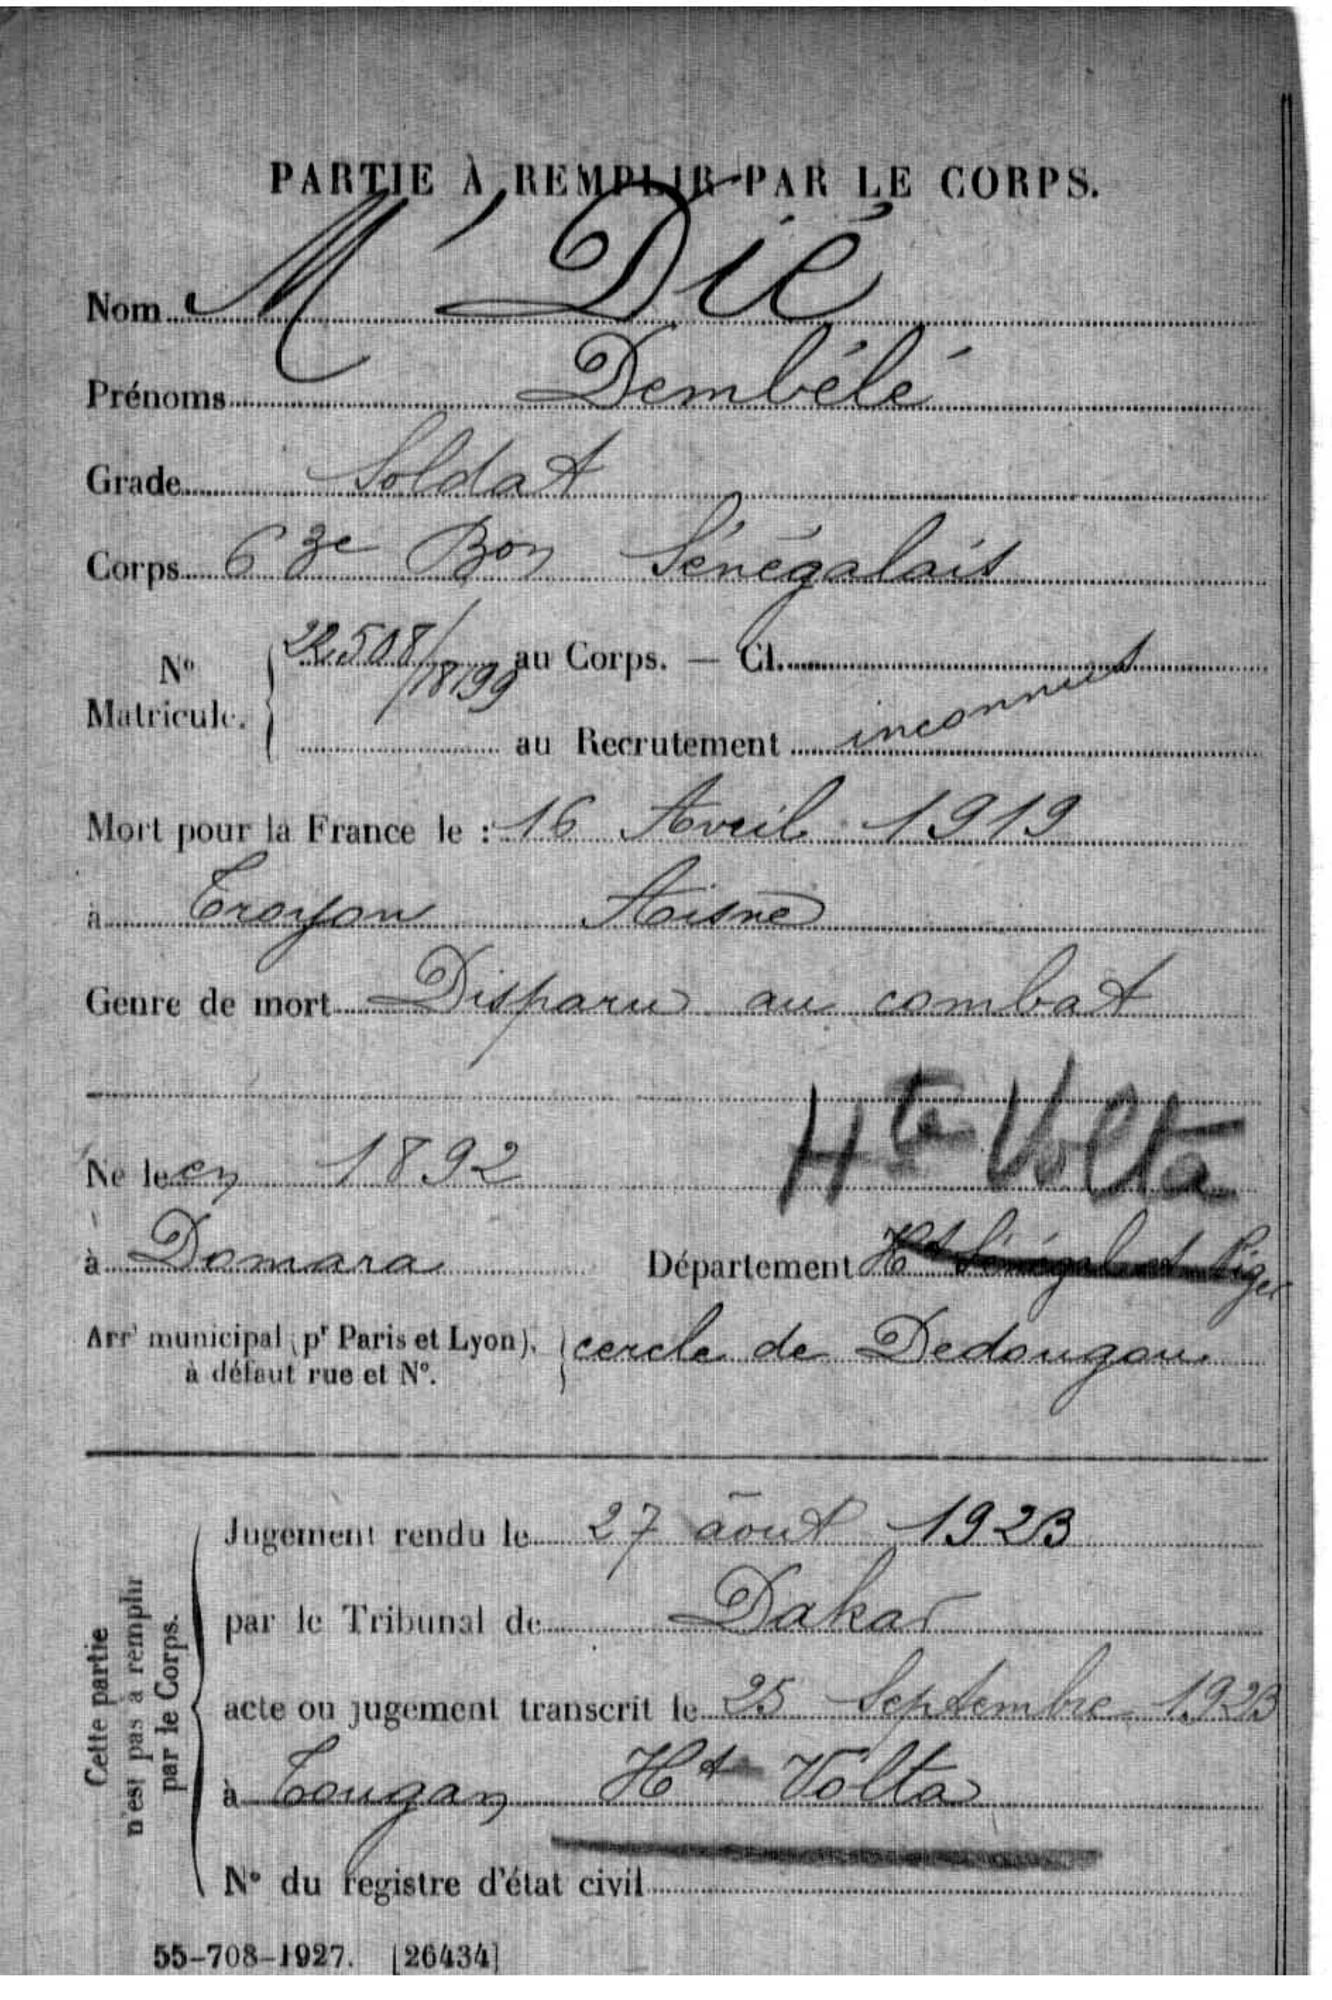 PARTIE À REMPLIR PAR LE CORPS.
Nom M' Dié
Prénoms Dembélé
Grade Soldat
Corps 63e Bon Sénégalais
No Matricule. 22508/18199 au Corps. — Cl.
au Recrutement inconnus
Mort pour la France le : 16 Avril 1919
à Troyon Aisne
Genre de mort Disparu au combat
Hte Volta
Né le en 1892
à Domara Département Ht Sénégal et Niger
Arrt municipal (pr Paris et Lyon), à défaut rue et No. cercle de Dedougou
Cette partie n'est pas à remplir par le Corps.
Jugement rendu le 27 août 1923
par le Tribunal de Dakar
acte ou jugement transcrit le 25 Septembre 1923
à Tougan Ht Volta
No du registre d'état civil
55-708-1927. [26434]